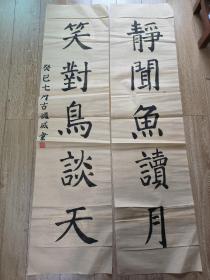 靜聞魚讀月
笑對鳥談天
癸巳七月古